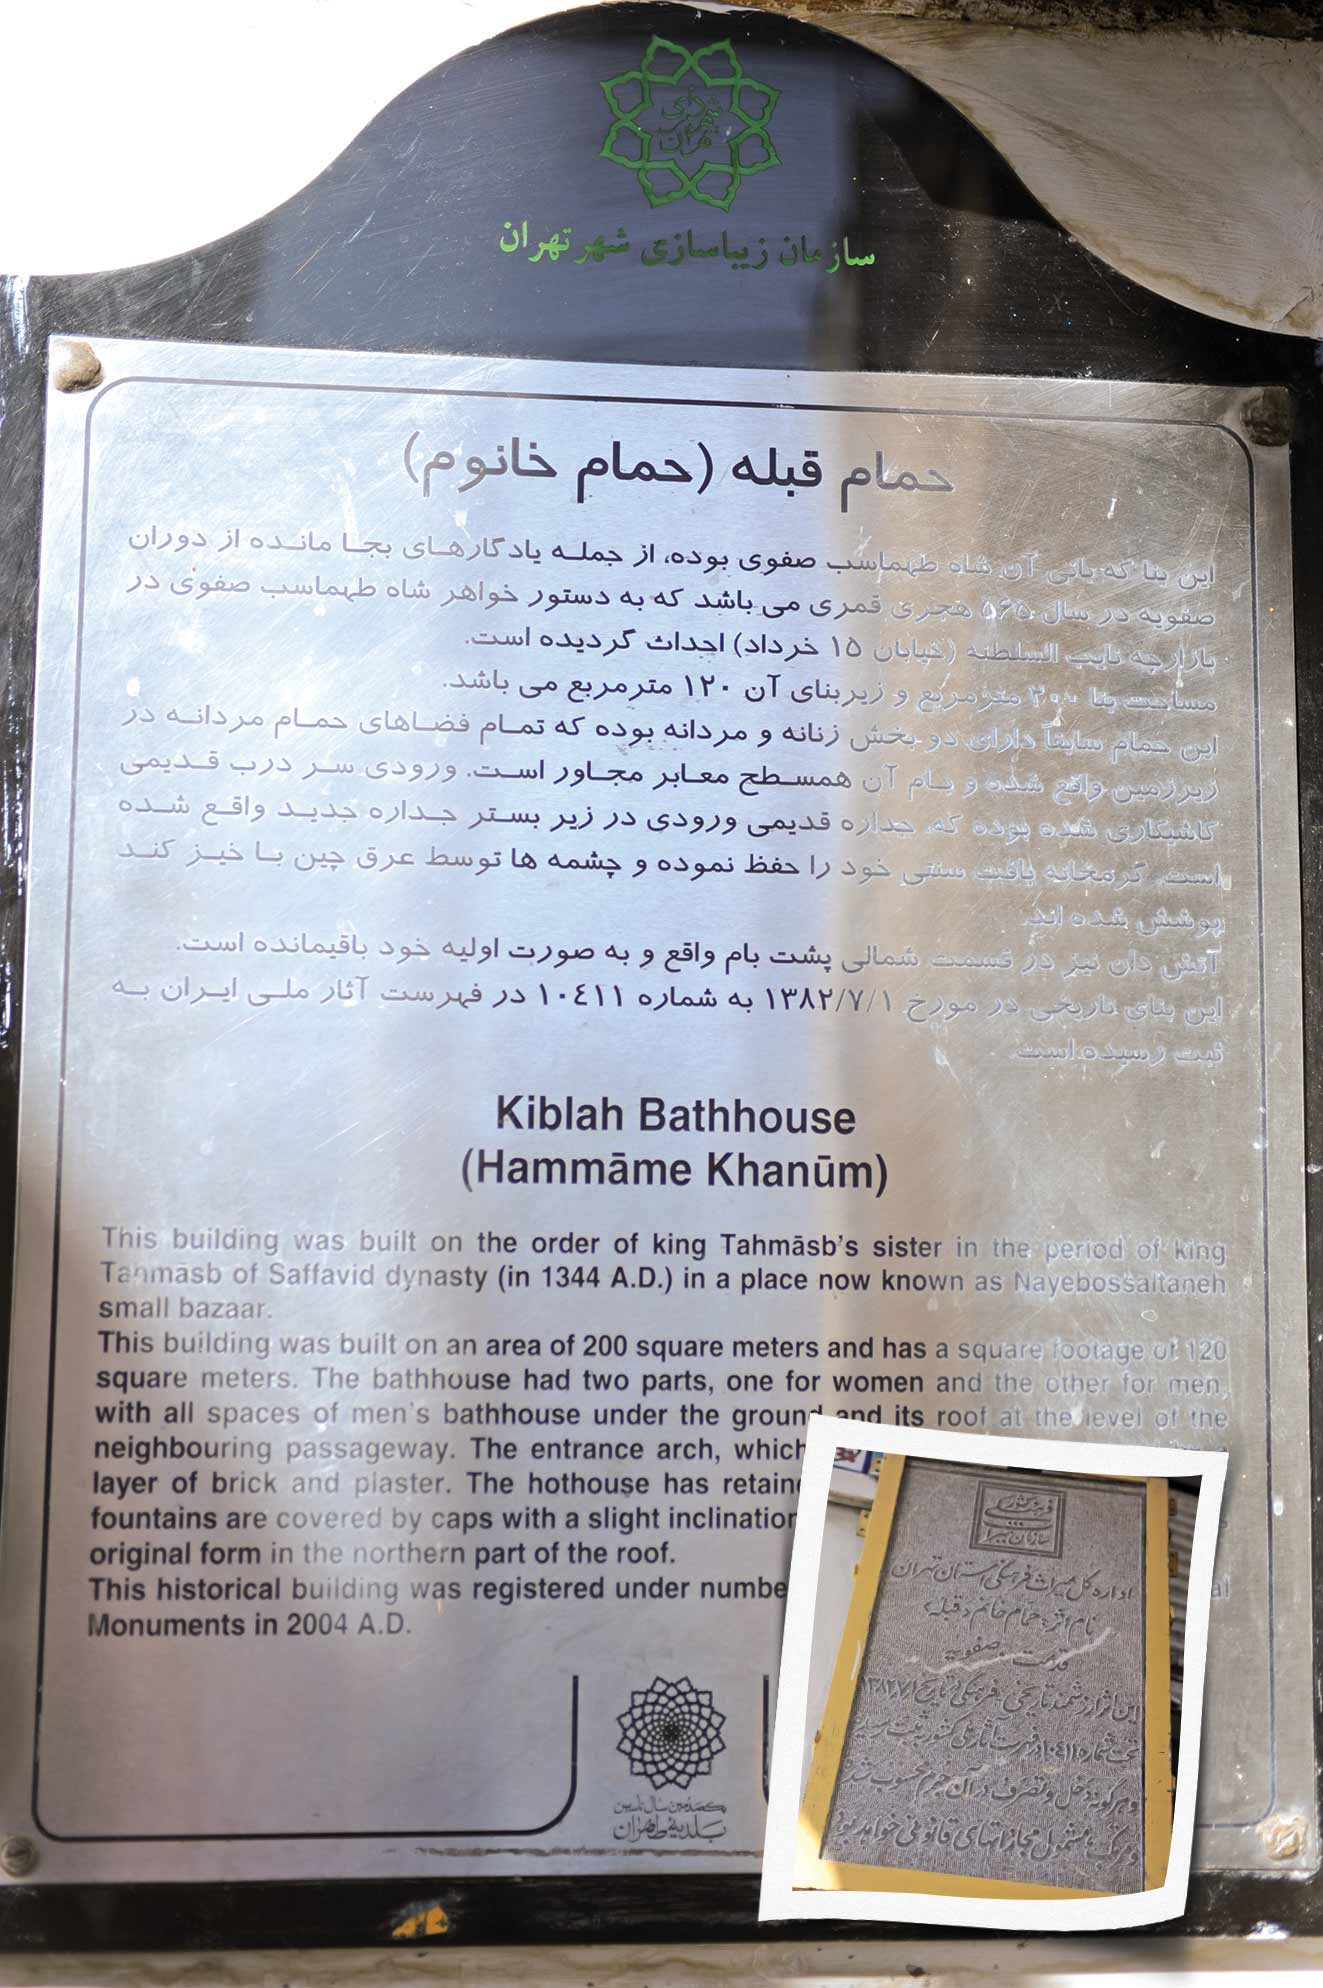 شهرداری
تهران
سازمان زیباسازی شهر تهران
حمام قبله (حمام خانوم)
این بنا که بانی آن شاه طهماسب صفوی بوده، از جمله یادگارهای بجا مانده از دوران
صفویه در سال ۵۶۵ هجری قمری می باشد که به دستور خواهر شاه طهماسب صفوی در
بازارچه نایب السلطنه (خیابان ۱۵ خرداد) احداث گردیده است.
مساحت بنا ۲۰۰ مترمربع و زیربنای آن ۱۲۰ مترمربع می باشد.
این حمام سابقاً دارای دو بخش زنانه و مردانه بوده که تمام فضاهای حمام مردانه در
زیرزمین واقع شده و بام آن همسطح معابر مجاور است. ورودی سر درب قدیمی
کاشیکاری شده بوده که جداره قدیمی ورودی در زیر بستر جداره جدید واقع شده
است. گرمخانه بافت سنتی خود را حفظ نموده و چشمه ها توسط عرق چین با خیز کند
پوشش شده اند.
آتش دان نیز در قسمت شمالی پشت بام واقع و به صورت اولیه خود باقیمانده است.
این بنای تاریخی در مورخ ۱۳۸۲/۷/۱ به شماره ۱۰٤۱۱ در فهرست آثار ملی ایران به
ثبت رسیده است.
Kiblah Bathhouse
(Hammāme Khanūm)
This building was built on the order of king Tahmāsb's sister in the period of king
Tahmāsb of Saffavid dynasty (in 1344 A.D.) in a place now known as Nayebossaltaneh
small bazaar.
This building was built on an area of 200 square meters and has a square footage of 120
square meters. The bathhouse had two parts, one for women and the other for men,
with all spaces of men's bathhouse under the ground and its roof at the level of the
neighbouring passageway. The entrance arch, which
layer of brick and plaster. The hothouse has
fountains are covered by caps with a slight
original form in the northern part of the roof.
This historical building was registered under
Monuments in 2004 A.D.
یکصدمین سال تاسیس
بلدیه طهران
اداره کل میراث فرهنگی استان تهران
نام اثر: حمام خانم «قبله»
قدمت: صفویه
این اثر ارزشمند تاریخی - فرهنگی تاریخ ۱۳۸۲/۷/۱
تحت شماره ۱۰٤۱۱ در فهرست آثار ملی کشور به ثبت رسیده
و هرگونه دخل و تصرف در آن جرم محسوب شده
و مرتکب مشمول مجازاتهای قانونی خواهد بود